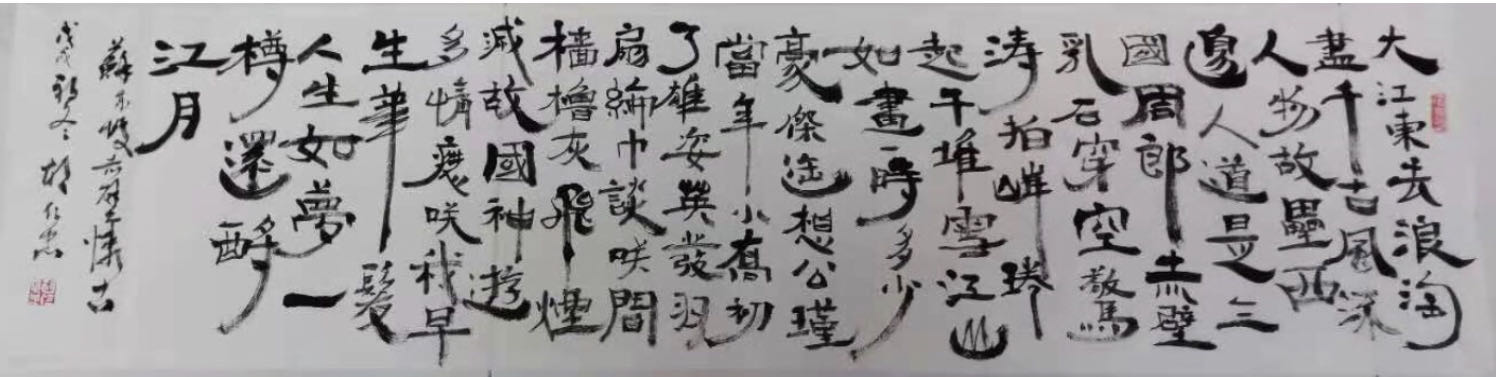 大江東去浪淘
盡千古風流
人物故壘西
邊人道是三
國周郎赤壁
乳石穿空驚
涛拍岸捲
起千堆雪江山
如畫一時多少
豪傑遥想公瑾
當年小喬初
了雄姿英發羽
扇綸巾談咲間
檣櫓灰飛煙
滅故國神遊
多情應咲我早
生華髮
人生如夢一
樽還酹
江月
蘇東坡赤壁懷古
戊戌初冬胡